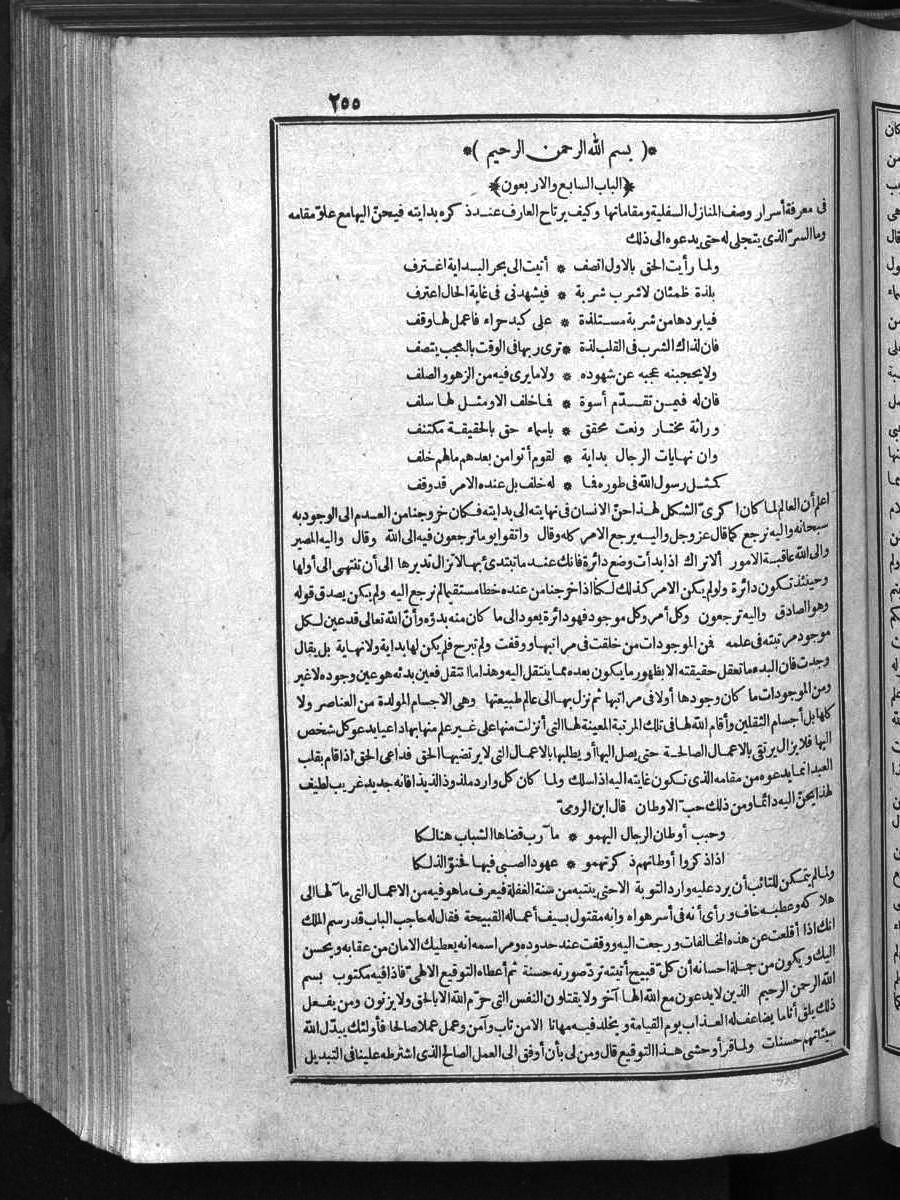 ٢٥٥
*( بسم الله الرحمن الرحيم )*
*(الباب السابع والاربعون)*
فى معرفة أسرار وصف المنازل السفلية ومقاماتها وكيف يرتاح العارف عند ذكره بدايته فيحنّ اليها مع علوّ مقامه
وما السرّ الذى يتجلى له حتى يدعوه الى ذلك
ولما رأيت الحق بالاول اتصف * أتيت الى بحر البداية اغترف
بلذة ظمئان لاشرب شربة * فيشهدنى فى غاية الحال اعترف
فيا بردها من شربة مستلذة * على كبد حراء فاعمل لها وقف
فان لذاك الشرب فى القلب لذة * ترى ربها فى الوقت بالعجب يتصف
ولا يحجبنه عجبه عن شهوده * ولا ما يرى فيه من الزهو والصلف
فان له فيمن تقدّم أسوة * فاخلف الاومثل لها سلف
وراثة مختار ونعت محقق * باسماء حق بالحقيقة مكتنف
وان نهايات الرجال بداية * لقوم أتوا من بعدهم مالهم خلف
كمثل رسول الله فى طوره فما * له خلف بل عنده الامر قد وقف
اعلم أن العالم لما كان اكرىّ الشكل لهذا حنّ الانسان فى نهايته الى بدايته فكان خروجنا من العدم الى الوجود به
سبحانه واليه نرجع كما قال عز وجل واليه يرجع الامر كله وقال واتقوا يوما ترجعون فيه الى الله وقال واليه المصير
والى الله عاقبة الامور ألاتراك اذا بدأت وضع دائرة فانك عند ما تبتدئ بها لاتزال تديرها الى أن تنتهى الى أولها
وحينئذ تكون دائرة ولو لم يكن الامر كذلك لكنا اذا خرجنا من عنده خطا مستقيما لم نرجع اليه ولم يكن يصدق قوله
وهو الصادق واليه ترجعون وكل أمر وكل موجود فهو دائرة يعود الى ما كان منه بدؤه وأنّ الله تعالى قد عين لكل
موجود مرتبته فى علمه فمن الموجودات من خلقت فى مراتبها ووقفت ولم تبرح فلم يكن لها بداية ولا نهاية بل يقال
وجدت فان البدء ما تعقل حقيقته الا بظهور ما يكون بعده مما ينتقل اليه وهذا ما انتقل فعين بدئه هو عين وجوده لاغير
ومن الموجودات ما كان وجودها أولا فى مراتبها ثم نزل بها الى عالم طبيعتها وهى الاجسام المولدة من العناصر ولا
كلها بل أجسام الثقلين وأقام الله لها فى تلك المرتبة المعينة لها التى أنزلت منها على غير علم منها بها داعيا يدعو كل شخص
اليها فلا يزال يرتقى بالاعمال الصالحة حتى يصل اليها أو يطلبها بالاعمال التى لا يرتضيها الحق فداعى الحق اذا قام بقلب
العبد انما يدعوه من مقامه الذى تكون غايته اليه اذا سلك ولما كان كل وارد ملذوذا لذيذا فانه جديد غريب لطيف
لهذا يحنّ اليه دائما ومن ذلك حبّ الاوطان قال ابن الرومىّ
وحبب أوطان الرجال اليهمو * مآرب قضاها الشباب هنالكا
اذا ذكروا أوطانهم ذكرتهمو * عهود الصبى فيها فحنوّا لذلكا
ولما لم يتمكن للتائب أن يرد عليه وارد التوبة الاحتى ينتبه من سنة الغفلة فيعرف ما هو فيه من الاعمال التى مآلها الى
هلاكه وعطبه خاف ورأى أنه فى أسر هواه وانه مقتول بسيف أعماله القبيحة فقال له حاجب الباب قد رسم الملك
انك اذا أقلعت عن هذه المخالفات ورجعت اليه ووقفت عند حدوده ومراسمه انه يعطيك الامان من عقابه ويحسن
اليك ويكون من جملة احسانه أن كلّ قبيح أتيته تردّ صورته حسنة ثم أعطاه التوقيع الالهىّ فاذا فيه مكتوب بسم
الله الرحمن الرحيم الذين لا يدعون مع الله الها آخر ولا يقتلون النفس التى حرّم الله الا بالحق ولا يزنون ومن يفعل
ذلك يلق أثاما يضاعف له العذاب يوم القيامة ويخلد فيه مهانا الا من تاب وآمن وعمل عملا صالحا فأولئك يبدّل الله
سيئاتهم حسنات ولما قرأ وحشى هذا التوقيع قال ومن لى بأن أوفق الى العمل الصالح الذى اشترطه علينا فى التبديل